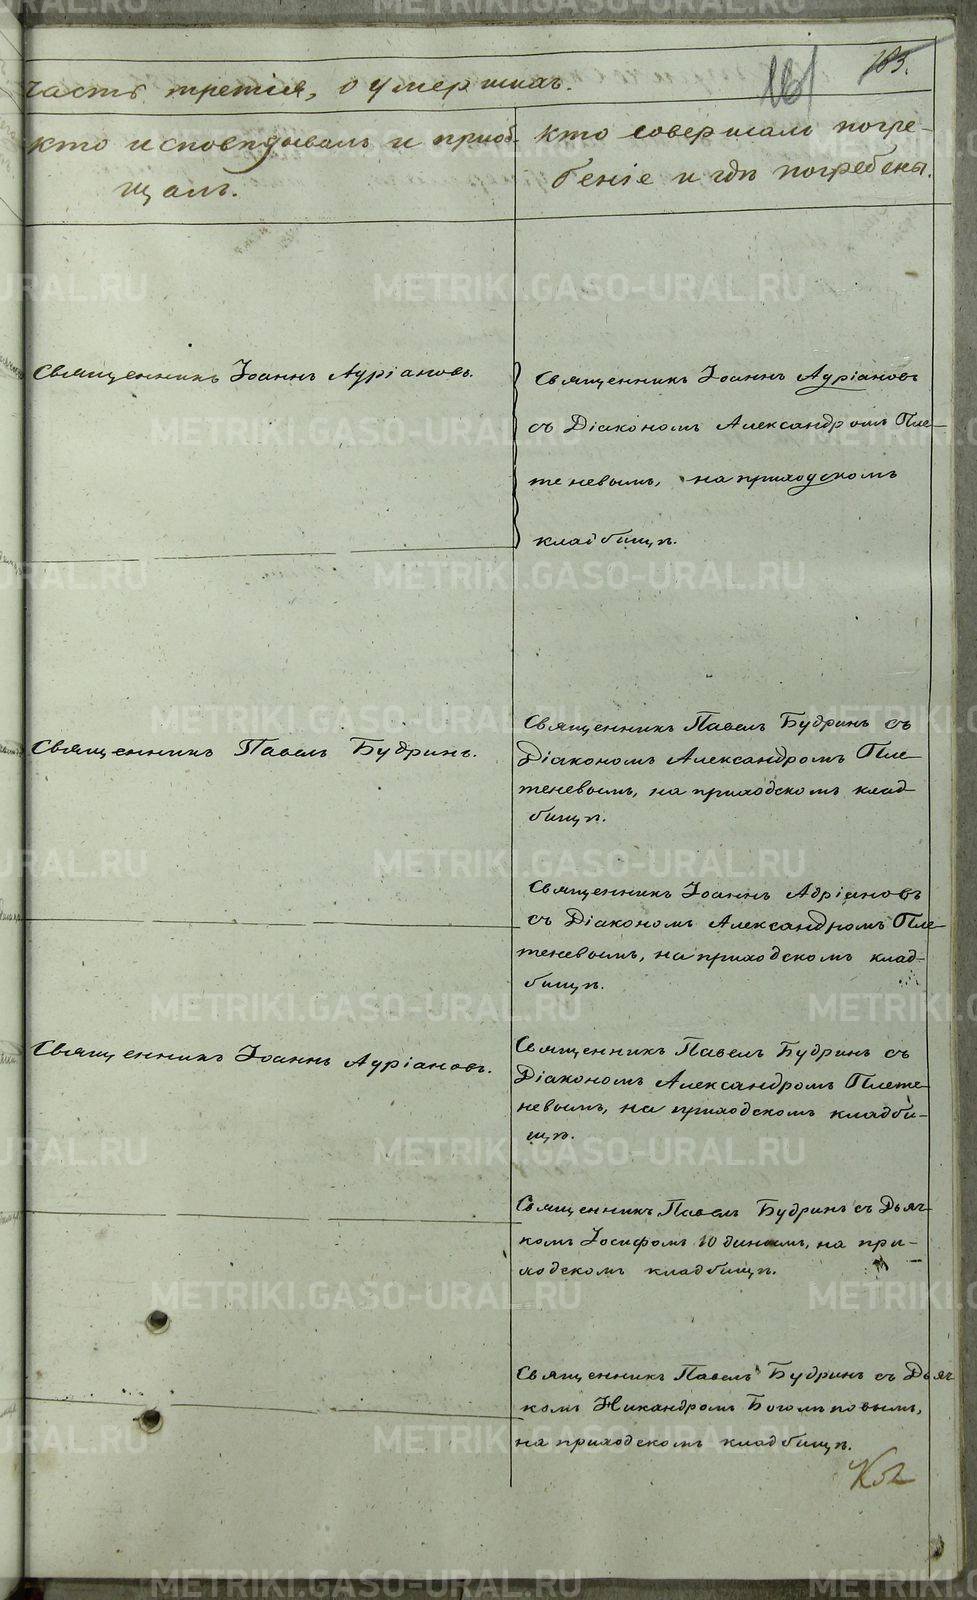 161
185.
Часть третія, о умершихъ.
Кто исповѣдывалъ и пріоб-
щалъ.
Кто совершалъ погре-
беніе и гдѣ погребены.
Священникъ Іоаннъ Адріановъ.
Священникъ Іоаннъ Адріановъ
съ Діакономъ Александромъ Пле-
теневымъ, на приходскомъ
кладбищѣ.
Священникъ Павелъ Будринъ.
Священникъ Павелъ Будринъ съ
Діакономъ Александромъ Пле
теневымъ, на приходскомъ клад
бищѣ.
Священникъ Іоаннъ Адріановъ
съ Діакономъ Александромъ Пле
теневымъ, на приходскомъ клад-
бищѣ.
Священникъ Іоаннъ Адріановъ.
Священникъ Павелъ Будринъ съ
Діакономъ Александромъ Плете
невымъ, на приходскомъ кладби-
щѣ.
Священникъ Павелъ Будринъ съ Дьяч
комъ Іосифомъ Юдинымъ, на при-
ходскомъ кладбищѣ.
Священникъ Павелъ Будринъ съ Дьяч
комъ Никандромъ Боголѣповымъ,
на приходскомъ кладбищѣ.
METRIKI.GASO-URAL.RU